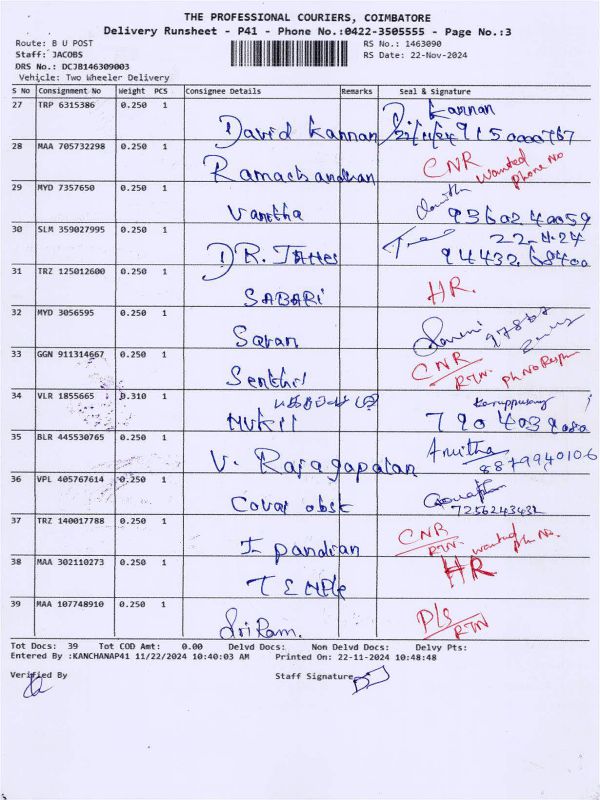 THE PROFESSIONAL COURIERS, COIMBATORE
Delivery Runsheet - P41 - Phone No.:0422-3505555 - Page No.:3
Route: B U POST
RS No.: 1463090
Staff: JACOBS
RS Date: 22-Nov-2024
DRS No.: DCJB146309003
Vehicle: Two Wheeler Delivery
S No Consignment No Weight PCS Consignee Details Remarks Seal & Signature
27 TRP 6315386 0.250 1 Kannan
David Kannan 9150000767
28 MAA 705732298 0.250 1 CNR Wanted
Ramachandran phone No
29 MYD 7357650 0.250 1
Vanitha 9360240059
30 SLM 359027995 0.250 1 22-11-24
DR. James 94432 68400
31 TRZ 125012600 0.250 1 HR.
SABARI
32 MYD 3056595 0.250 1
Saran
33 GGN 911314667 0.250 1 CNR
Senthil RTN. Ph No Respn
34 VLR 1855665 0.310 1 Karuppusamy
Mukil 790 4039080
35 BLR 445530765 0.250 1 Anitha
V. Rajagapalan 8879940106
36 VPL 405767614 0.250 1
Covai obst 7256243432
37 TRZ 140017788 0.250 1 CNR
I pandian RTN. wanted Ph No.
38 MAA 302110273 0.250 1 HR
TEMPle
39 MAA 107748910 0.250 1 P/s
Sri Ram. RTN
Tot Docs: 39 Tot COD Amt: 0.00 Delvd Docs: Non Delvd Docs: Delvy Pts:
Entered By :KANCHANAP41 11/22/2024 10:40:03 AM Printed On: 22-11-2024 10:48:48
Verified By Staff Signature